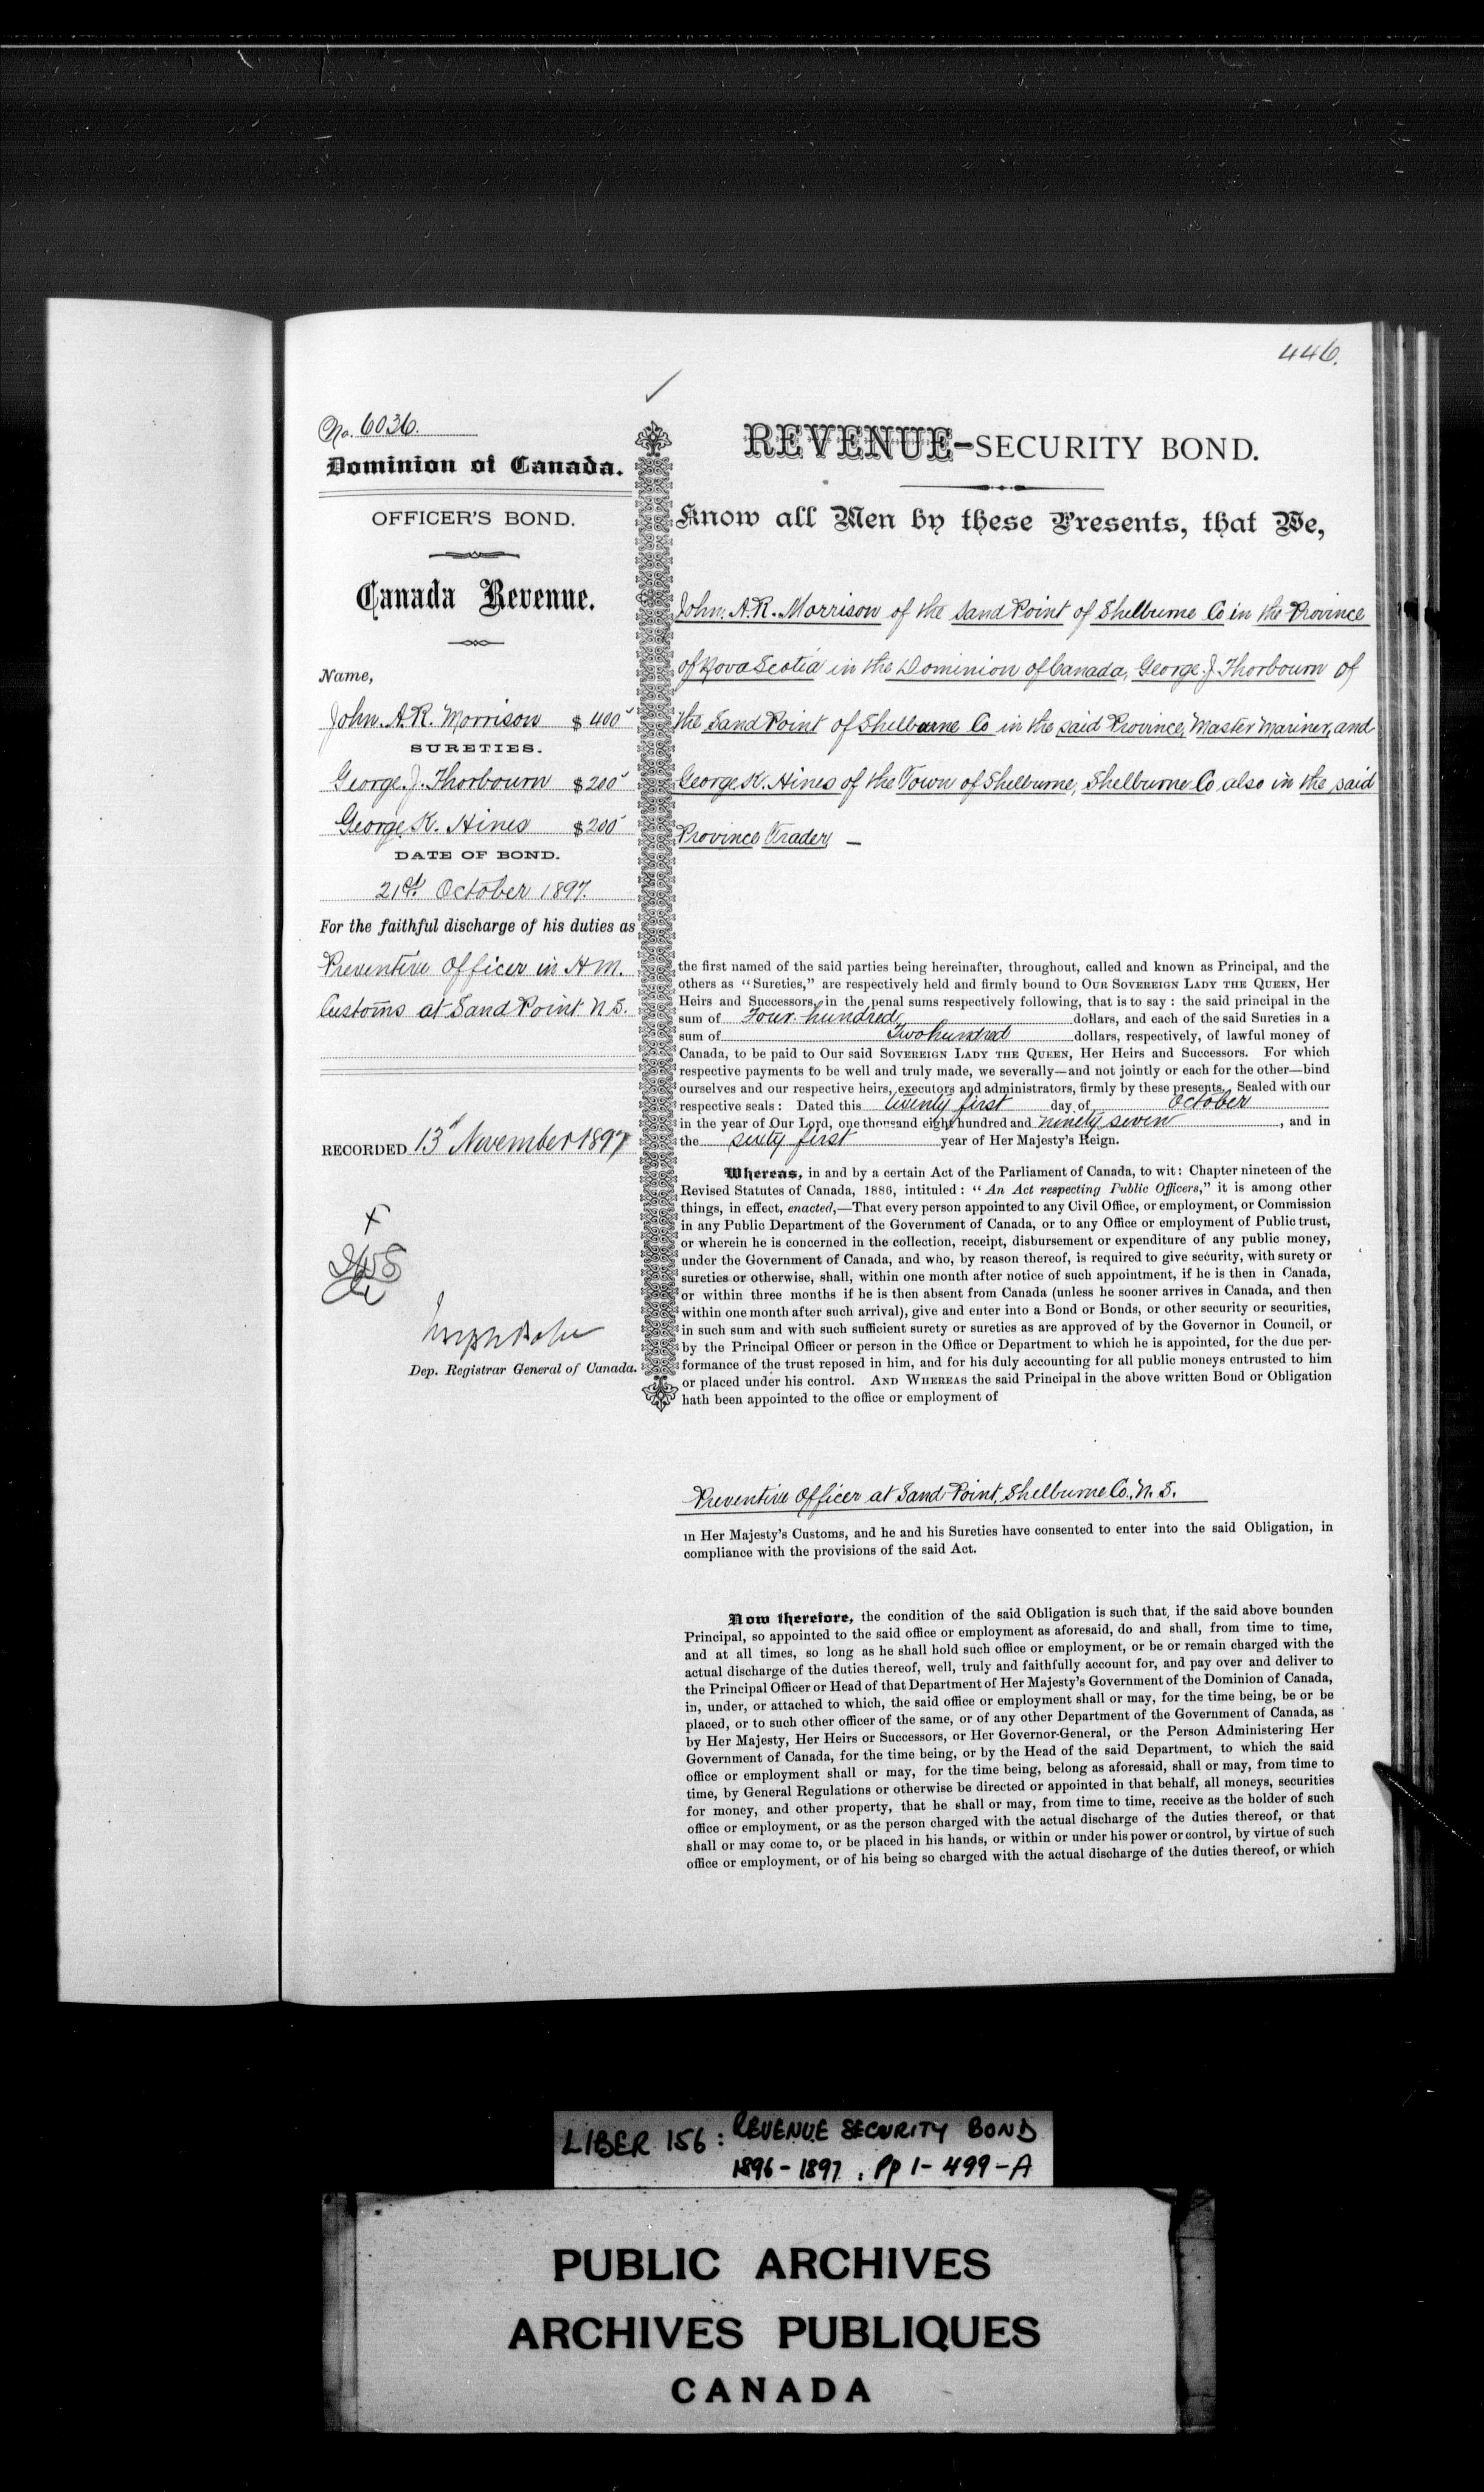 446.
No. 6036.
Dominion of Canada.
OFFICER'S BOND.
Canada Revenue.
Name,
John. A. R. Morrison $ 400
SURETIES.
George. J. Thorbourn $ 200
George K. Hines $ 200
DATE OF BOND.
21st October 1897.
For the faithful discharge of his duties as
Preventive Officer in H M.
Customs at Sand Point N S.
RECORDED 13 November 1897
Dep. Registrar General of Canada.
REVENUE-SECURITY BOND.
Know all Men by these Presents, that We,
John. A. R. Morrison of the Sand Point of Shelburne Co in the Province
of Nova Scotia in the Dominion of Canada, George. J. Thorbourn of
the Sand Point of Shelburne Co in the said Province, Master Mariner, and
George K. Hines of the Town of Shelburne, Shelburne Co also in the said
Province Trader —
the first named of the said parties being hereinafter, throughout, called and known as Principal, and the
others as "Sureties," are respectively held and firmly bound to OUR SOVEREIGN LADY THE QUEEN, Her
Heirs and Successors, in the penal sums respectively following, that is to say : the said principal in the
sum of Four hundred dollars, and each of the said Sureties in a
sum of Two hundred dollars, respectively, of lawful money of
Canada, to be paid to Our said SOVEREIGN LADY THE QUEEN, Her Heirs and Successors. For which
respective payments to be well and truly made, we severally—and not jointly or each for the other—bind
ourselves and our respective heirs, executors and administrators, firmly by these presents. Sealed with our
respective seals : Dated this twenty first day of October
in the year of Our Lord, one thousand eight hundred and ninety seven, and in
the sixty first year of Her Majesty's Reign.
Whereas, in and by a certain Act of the Parliament of Canada, to wit : Chapter nineteen of the
Revised Statutes of Canada, 1886, intituled : "An Act respecting Public Officers," it is among other
things, in effect, enacted,—That every person appointed to any Civil Office, or employment, or Commission
in any Public Department of the Government of Canada, or to any Office or employment of Public trust,
or wherein he is concerned in the collection, receipt, disbursement or expenditure of any public money,
under the Government of Canada, and who, by reason thereof, is required to give security, with surety or
sureties or otherwise, shall, within one month after notice of such appointment, if he is then in Canada,
or within three months if he is then absent from Canada (unless he sooner arrives in Canada, and then
within one month after such arrival), give and enter into a Bond or Bonds, or other security or securities,
in such sum and with such sufficient surety or sureties as are approved of by the Governor in Council, or
by the Principal Officer or person in the Office or Department to which he is appointed, for the due per-
formance of the trust reposed in him, and for his duly accounting for all public moneys entrusted to him
or placed under his control. AND WHEREAS the said Principal in the above written Bond or Obligation
hath been appointed to the office or employment of
Preventive Officer at Sand Point, Shelburne Co., N. S.
in Her Majesty's Customs, and he and his Sureties have consented to enter into the said Obligation, in
compliance with the provisions of the said Act.
Now therefore, the condition of the said Obligation is such that, if the said above bounden
Principal, so appointed to the said office or employment as aforesaid, do and shall, from time to time,
and at all times, so long as he shall hold such office or employment, or be or remain charged with the
actual discharge of the duties thereof, well, truly and faithfully account for, and pay over and deliver to
the Principal Officer or Head of that Department of Her Majesty's Government of the Dominion of Canada,
in, under, or attached to which, the said office or employment shall or may, for the time being, be or be
placed, or to such other officer of the same, or of any other Department of the Government of Canada, as
by Her Majesty, Her Heirs or Successors, or Her Governor-General, or the Person Administering Her
Government of Canada, for the time being, or by the Head of the said Department, to which the said
office or employment shall or may, for the time being, belong as aforesaid, shall or may, from time to
time, by General Regulations or otherwise be directed or appointed in that behalf, all moneys, securities
for money, and other property, that he shall or may, from time to time, receive as the holder of such
office or employment, or as the person charged with the actual discharge of the duties thereof, or that
shall or may come to, or be placed in his hands, or within or under his power or control, by virtue of such
office or employment, or of his being so charged with the actual discharge of the duties thereof, or which
LIBER 156 : REVENUE SECURITY BOND
1896 - 1897 . Pp 1 - 499 - A
PUBLIC ARCHIVES
ARCHIVES PUBLIQUES
CANADA